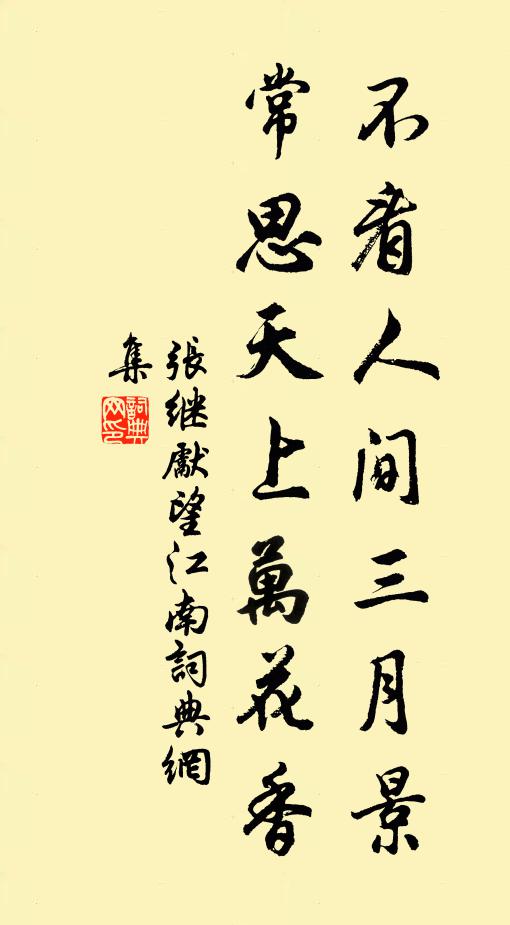 不看人间三月景
常思天上萬花香
張继獻望江南詞典網
集
詞典
网印